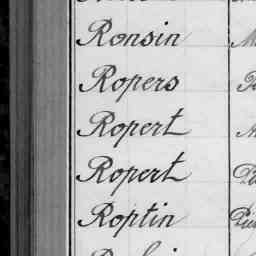 Ronsin
Ropers
Ropert
Ropert
Roptin